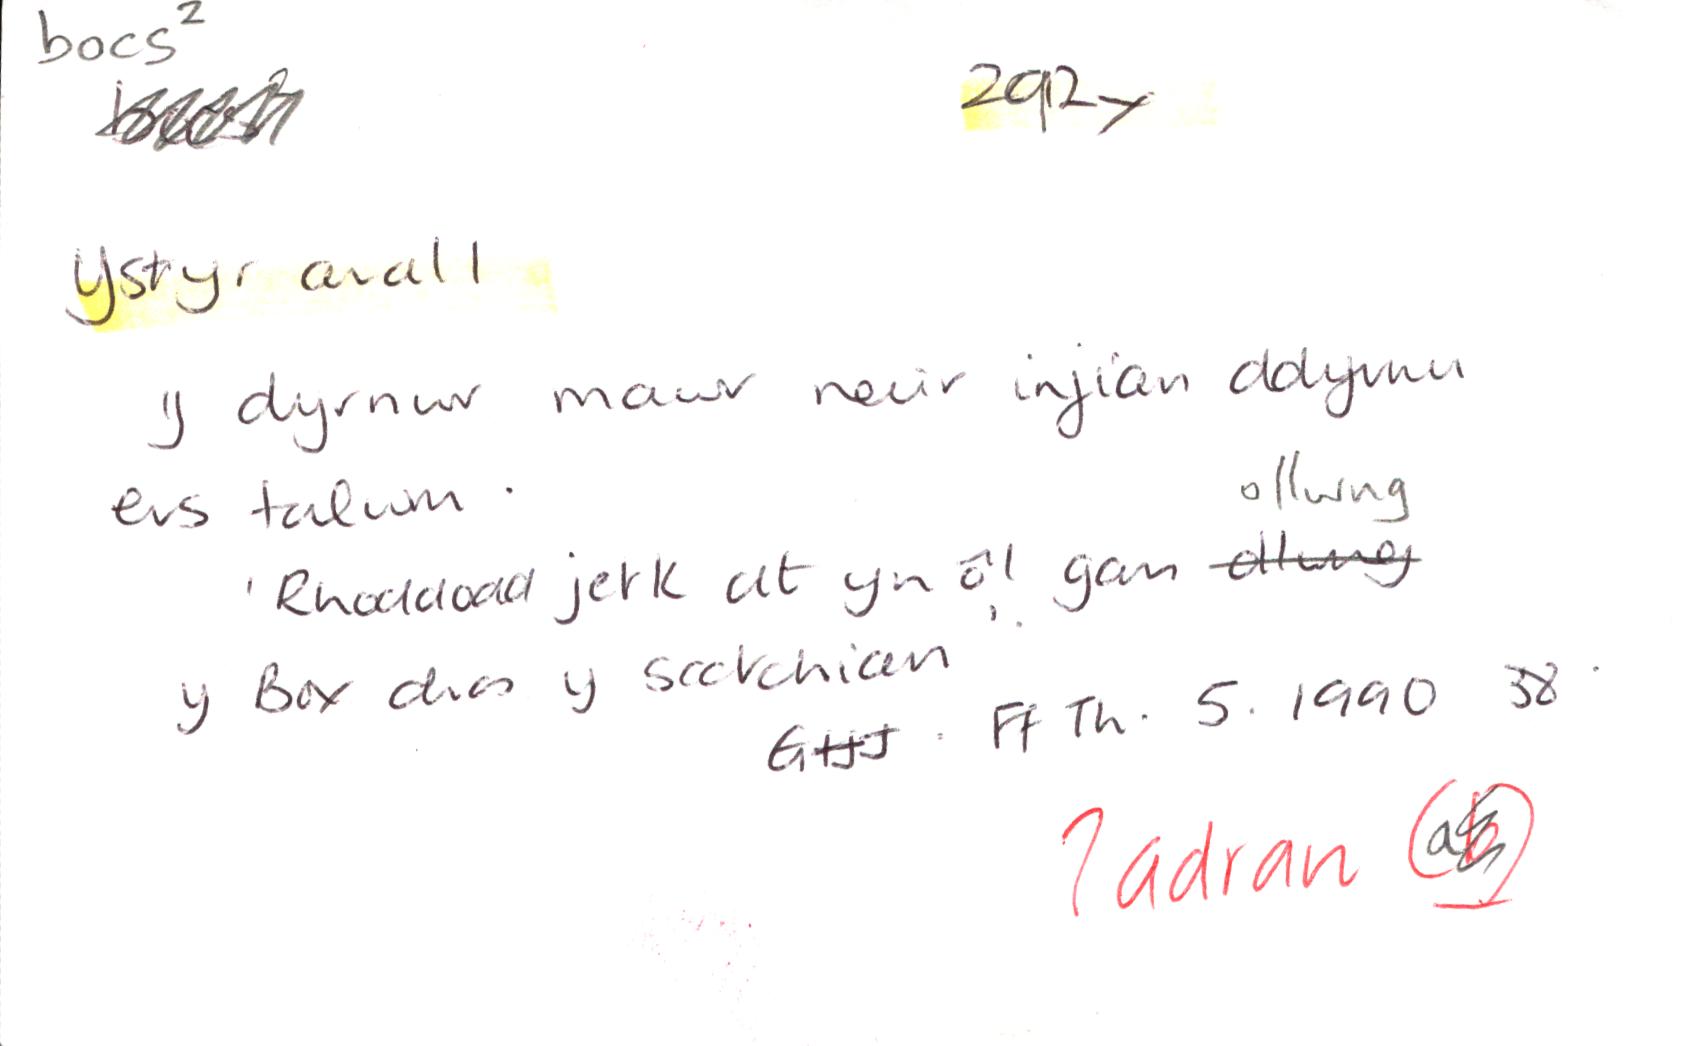 bocs²
292y
Ystyr arall
y dyrnwr mawr neu'r injian ddyrnu
ers talwm.
ollwng
'Rhoddodd jerk at yn ôl gan
y Box dros y scotchian'.
GHJ. Ff Th. 5. 1990 38.
? adran (a)